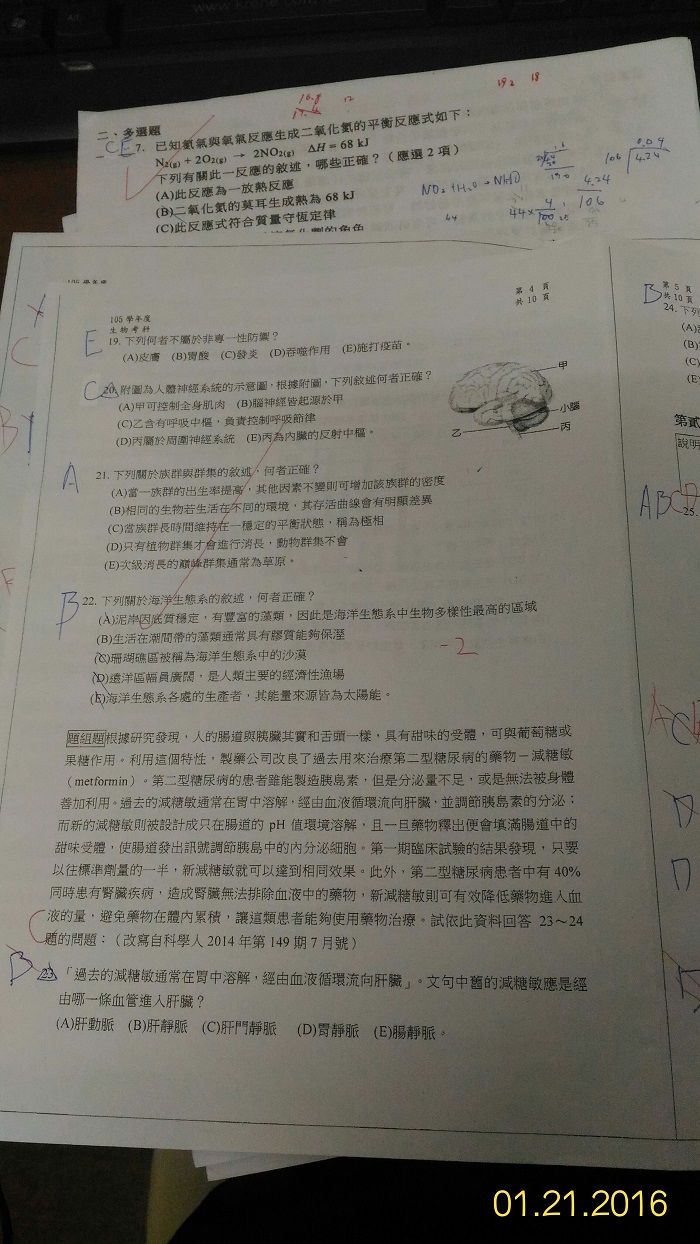 Alt
16.8
12
19.2 18
17.6
二、多選題
CE 7. 已知氮氣與氧氣反應生成二氧化氮的平衡反應式如下：
N₂(g) + 2O₂(g) → 2NO₂(g) ΔH = 68 kJ
下列有關此一反應的敘述，哪些正確？（應選 2 項）
(A)此反應為一放熱反應
(B)二氧化氮的莫耳生成熱為 68 kJ
(C)此反應式符合質量守恆定律
0.04
106
4.24
4.24
106
44
44×
4
100
105 學年度
生物考科
第 4 頁
共 10 頁
E 19. 下列何者不屬於非專一性防禦？
(A)皮膚 (B)胃酸 (C)發炎 (D)吞噬作用 (E)施打疫苗。
C 20. 附圖為人體神經系統的示意圖，根據附圖，下列敘述何者正確？
(A)甲可控制全身肌肉 (B)腦神經皆起源於甲
(C)乙含有呼吸中樞，負責控制呼吸節律
(D)丙屬於周圍神經系統 (E)丙為內臟的反射中樞。
甲
小腦
乙
丙
A 21. 下列關於族群與群集的敘述，何者正確？
(A)當一族群的出生率提高，其他因素不變則可增加該族群的密度
(B)相同的生物若生活在不同的環境，其存活曲線會有明顯差異
(C)當族群長時間維持在一穩定的平衡狀態，稱為極相
(D)只有植物群集才會進行消長，動物群集不會
(E)次級消長的巔峰群集通常為草原。
B 22. 下列關於海洋生態系的敘述，何者正確？
(A)泥岸因底質穩定，有豐富的藻類，因此是海洋生態系中生物多樣性最高的區域
(B)生活在潮間帶的藻類通常具有膠質能夠保溼
(C)珊瑚礁區被稱為海洋生態系中的沙漠
(D)遠洋區幅員廣闊，是人類主要的經濟性漁場
(E)海洋生態系各處的生產者，其能量來源皆為太陽能。
-2
題組題根據研究發現，人的腸道與胰臟其實和舌頭一樣，具有甜味的受體，可與葡萄糖或
果糖作用。利用這個特性，製藥公司改良了過去用來治療第二型糖尿病的藥物－減糖敏
（metformin）。第二型糖尿病的患者雖能製造胰島素，但是分泌量不足，或是無法被身體
善加利用。過去的減糖敏通常在胃中溶解，經由血液循環流向肝臟，並調節胰島素的分泌；
而新的減糖敏則被設計成只在腸道的 pH 值環境溶解，且一旦藥物釋出便會填滿腸道中的
甜味受體，使腸道發出訊號調節胰島中的內分泌細胞。第一期臨床試驗的結果發現，只要
以往標準劑量的一半，新減糖敏就可以達到相同效果。此外，第二型糖尿病患者中有 40%
同時患有腎臟疾病，造成腎臟無法排除血液中的藥物，新減糖敏則可有效降低藥物進入血
液的量，避免藥物在體內累積，讓這類患者能夠使用藥物治療。試依此資料回答 23～24
題的問題：（改寫自科學人 2014 年第 149 期 7 月號）
C
B 23. 「過去的減糖敏通常在胃中溶解，經由血液循環流向肝臟」。文句中舊的減糖敏應是經
由哪一條血管進入肝臟？
(A)肝動脈 (B)肝靜脈 (C)肝門靜脈 (D)胃靜脈 (E)腸靜脈。
第 5 頁
共 10 頁
B
24. 下列
(A)
(B)
(C)
(E)
第貳
說明
ABCD
25.
01.21.2016